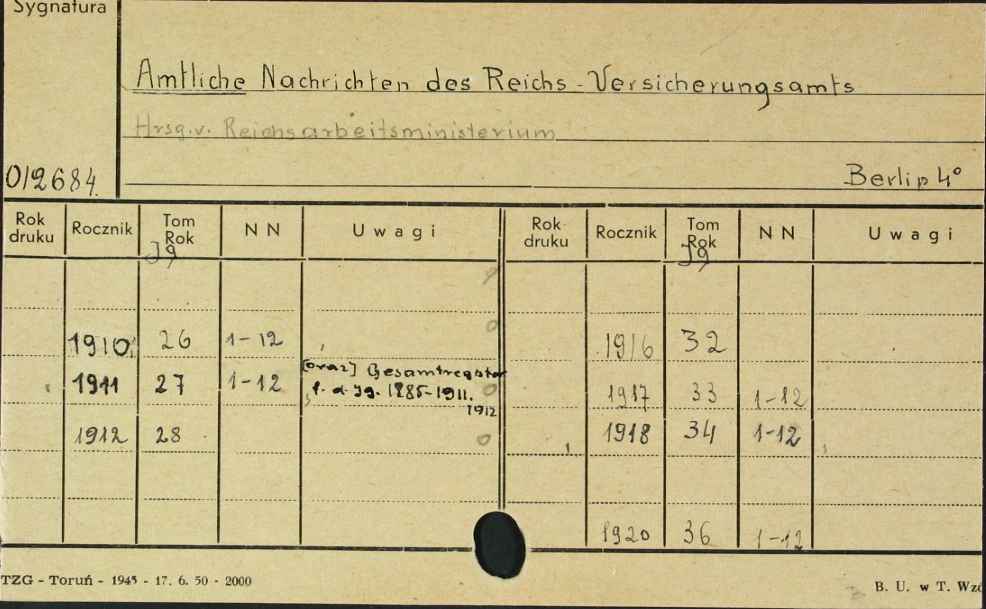 Sygnatura
Amtliche Nachrichten des Reichs-Versicherungsamts
Hrsg.v. Reichsarbeitsministerium
012684. Berlin 4°
Rok druku Rocznik Tom Rok Jg N N Uwagi Rok druku Rocznik Tom Rok Jg N N Uwagi
1910 26 1-12 1916 32
1911 27 1-12 [oraz] Gesamtregister
f. d. Jg. 1885-1911. 1917 33 1-12
1912
1912 28 1918 34 1-12
1920 36 1-12
TZG - Toruń - 1945 - 17. 6. 50 - 2000 B. U. w T. Wzó